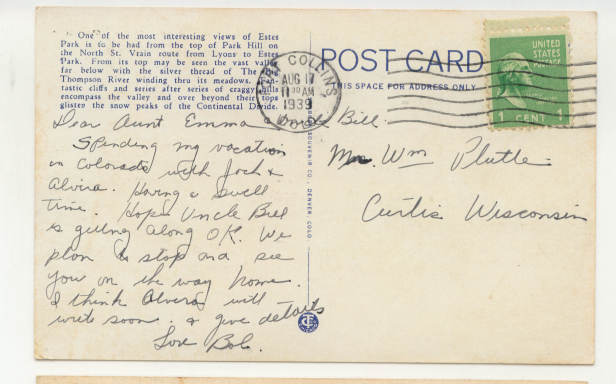 One of the most interesting views of Estes
Park is to be had from the top of Park Hill on
the North St. Vrain route from Lyons to Estes
Park. From its top may be seen the vast valley
far below with the silver thread of The
Thompson River winding thru its meadows. Fan-
tastic cliffs and series after series of craggy hills
encompass the valley and over beyond their tops
glisten the snow peaks of the Continental Divide.
POST CARD
THIS SPACE FOR ADDRESS ONLY
FORT COLLINS
AUG 17
11 30 AM
1939
COLO.
UNITED
STATES
POSTAGE
1 CENT 1
Dear Aunt Emma & Uncle Bill
Spending my vacation
in Colorado with Jack &
Alvira. Having a swell
time. Hope Uncle Bill
is getting along OK. We
plan to stop and see
you on the way home.
I think Alvera will
write soon. & give details
Love Bob.
Mr. Wm Plutte
Curtis Wisconsin
SOUVENIR CO., DENVER, COLO.